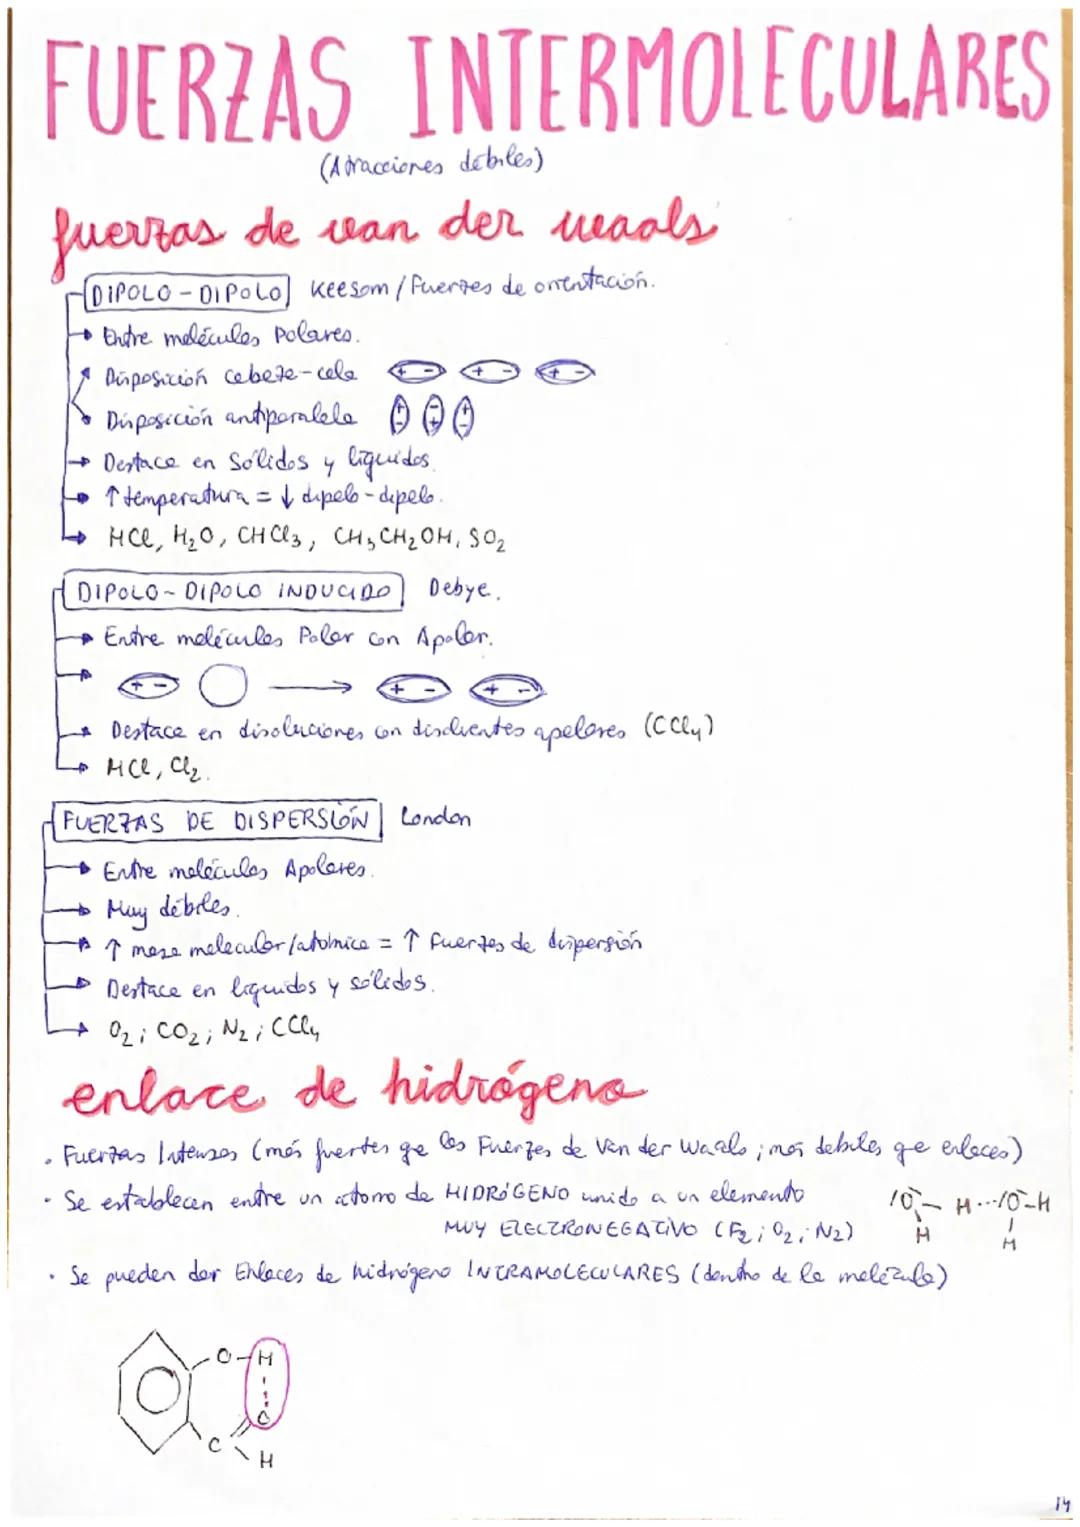 FUERZAS INTERMOLECULARES
(Atracciones débiles)
fuerzas de van der waals
DIPOLO - DIPOLO Keesom / Fuerzas de orientación.
Entre moléculas Polares.
Disposición cabeza-cola + - + - + -
Disposición antiparalela + - - + + -
Destaca en Sólidos y líquidos.
↑ temperatura = ↓ dipolo - dipolo.
HCl, H₂O, CHCl₃, CH₃CH₂OH, SO₂
DIPOLO - DIPOLO INDUCIDO Debye.
Entre moléculas Polar con Apolar.
+ - → + - + -
Destaca en disoluciones con disolventes apolares (CCl₄)
HCl, Cl₂.
FUERZAS DE DISPERSIÓN London
Entre moléculas Apolares.
Muy débiles.
↑ masa molecular/atómica = ↑ fuerzas de dispersión
Destaca en líquidos y sólidos.
O₂; CO₂; N₂; CCl₄
enlace de hidrógeno
· Fuerzas Intensas (más fuertes qe las Fuerzas de Van der Waals; más débiles qe enlaces)
· Se establecen entre un átomo de HIDRÓGENO unido a un elemento
MUY ELECTRONEGATIVO (F₂; O₂; N₂)
O - H ··· O - H
H H
· Se pueden dar Enlaces de hidrógeno INTRAMOLECULARES (dentro de la molécula)
O - H
O
C
H
14